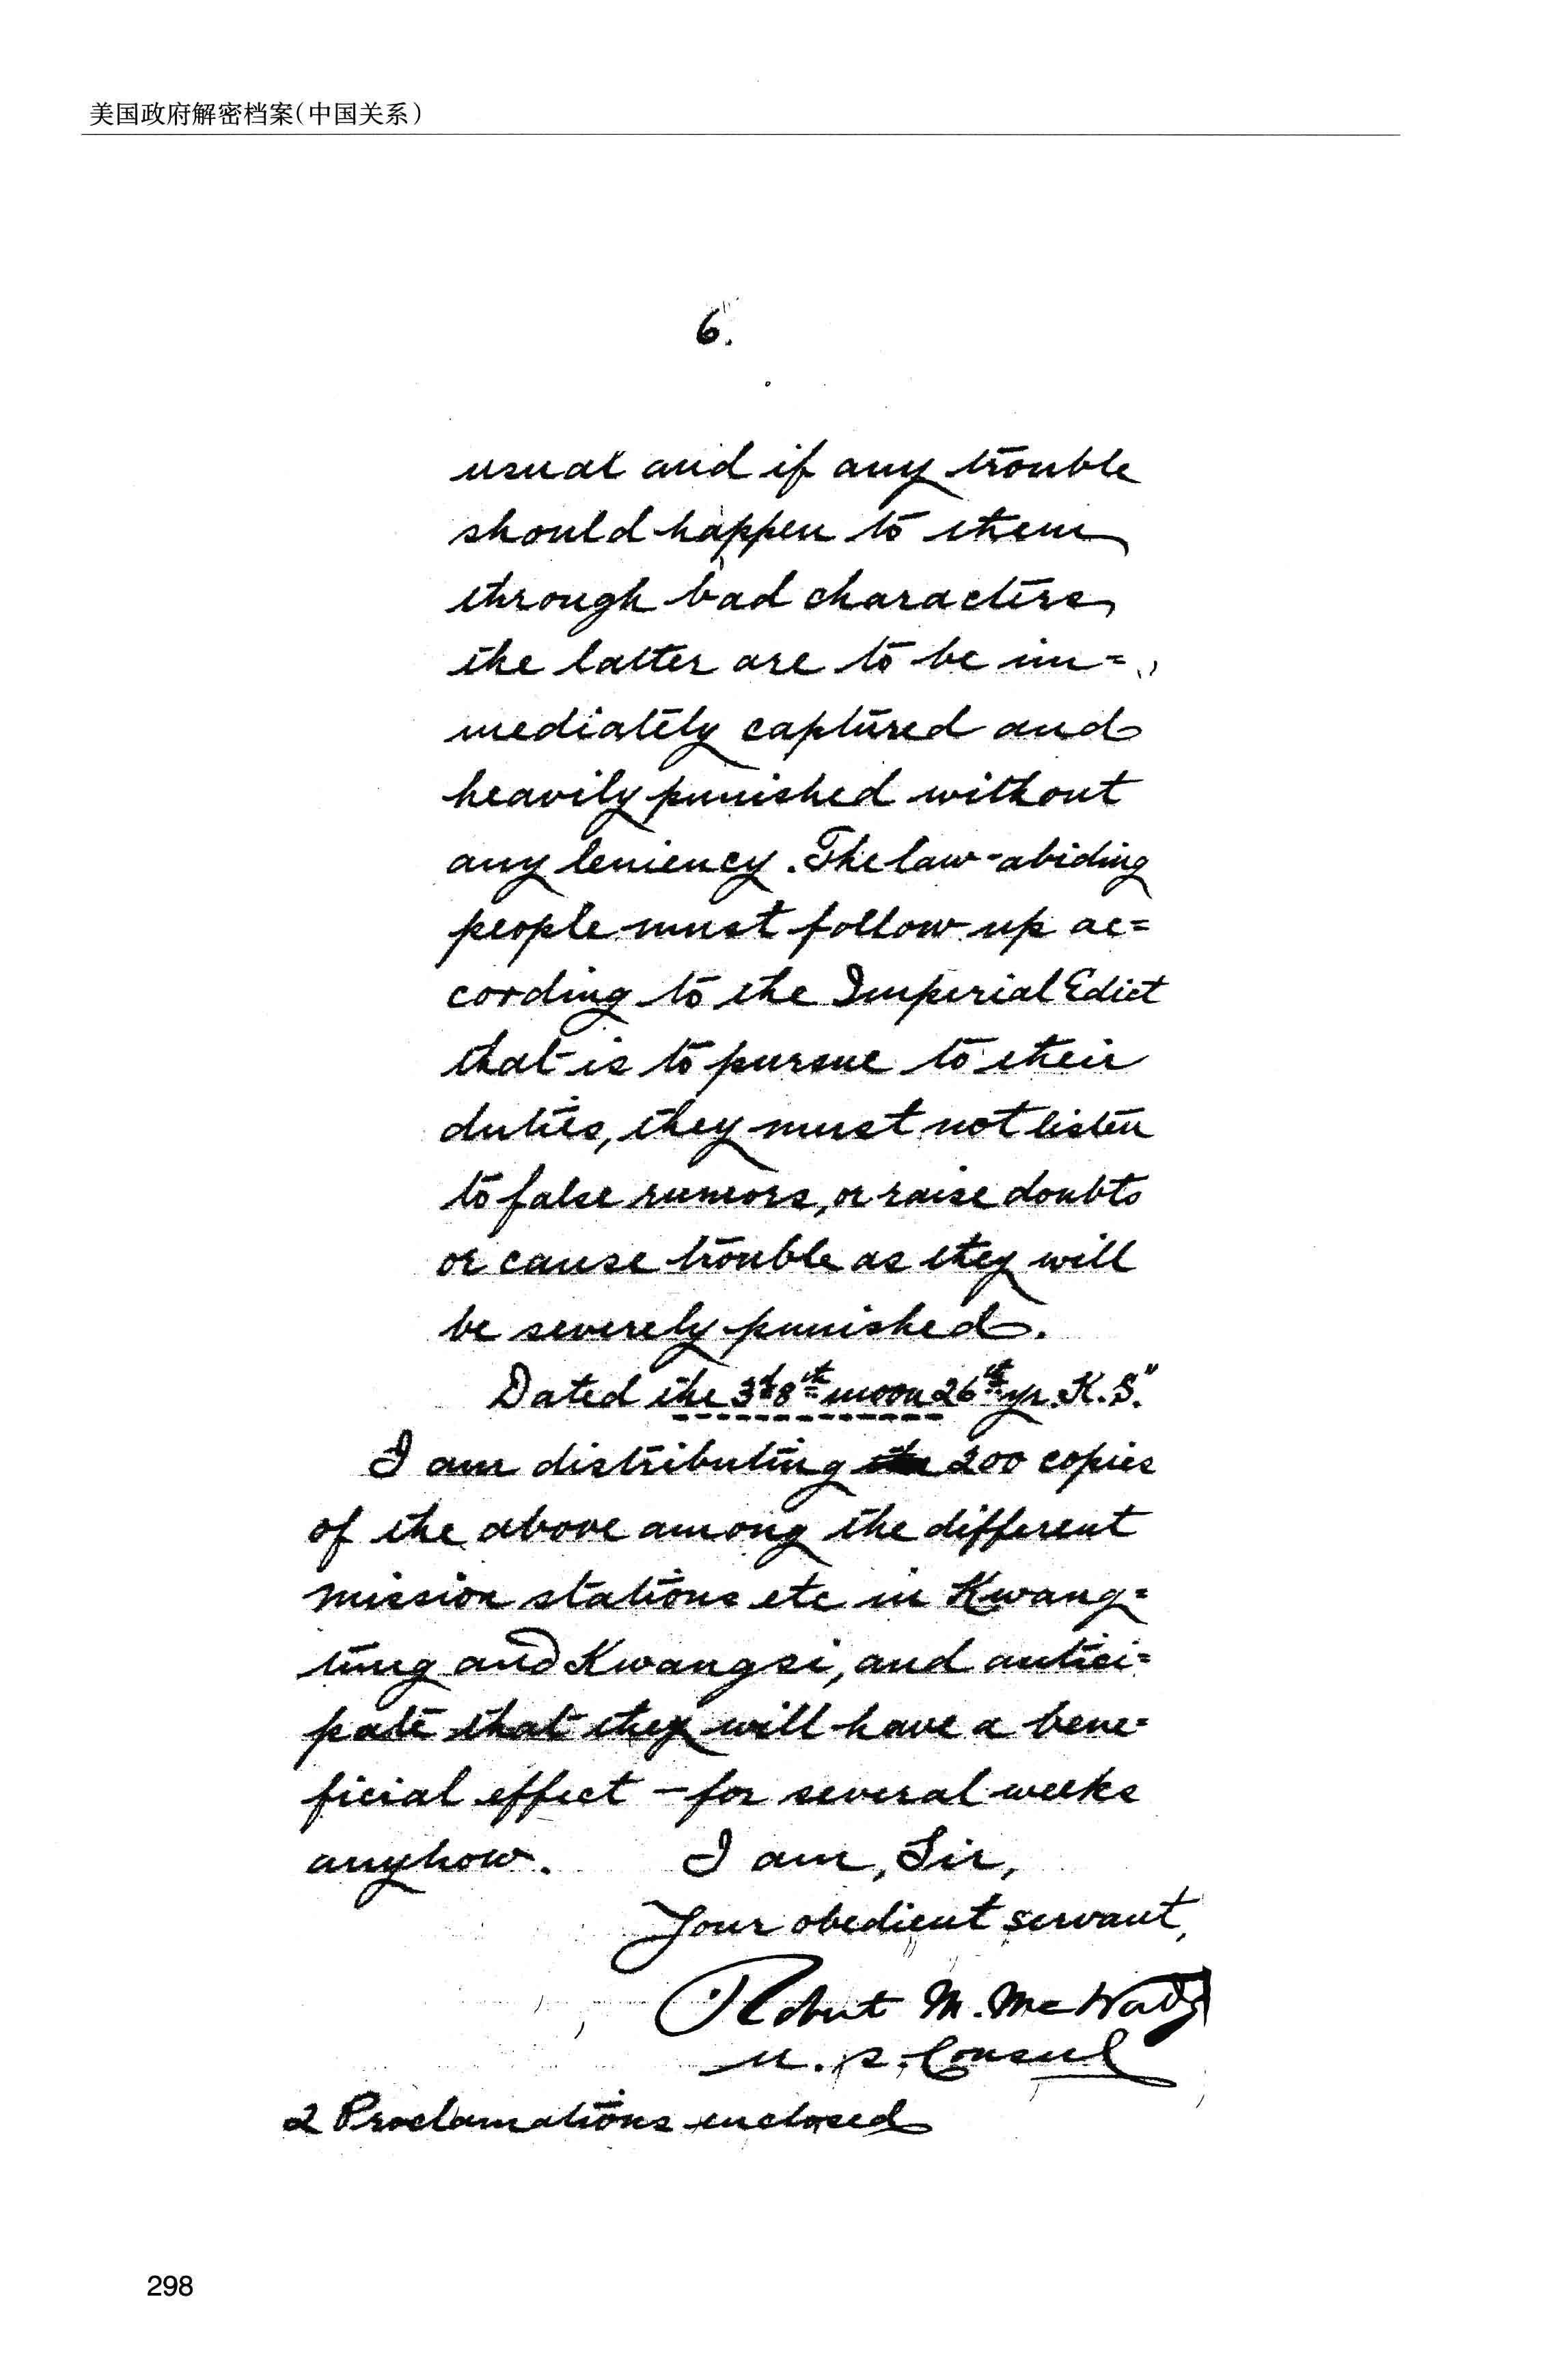 美国政府解密档案(中国关系)
6.
usual and if any trouble
should happen to them
through bad characters,
the latter are to be im=
mediately captured and
heavily punished without
any leniency. The law-abiding
people must follow up ac=
cording to the Imperial Edict
that is to pursue to their
duties, they must not listen
to false rumors, or raise doubts
or cause trouble as they will
be severely punished.
Dated the 3d 8th moon 26th yr. K. S."
I am distributing 200 copies
of the above among the different
mission stations etc in Kwang=
tung and Kwangsi, and antici=
pate that they will have a bene=
ficial effect – for several weeks
anyhow. I am, Sir,
Your obedient servant,
Robert M. McWade
U. S. Consul
2 Proclamations enclosed
298